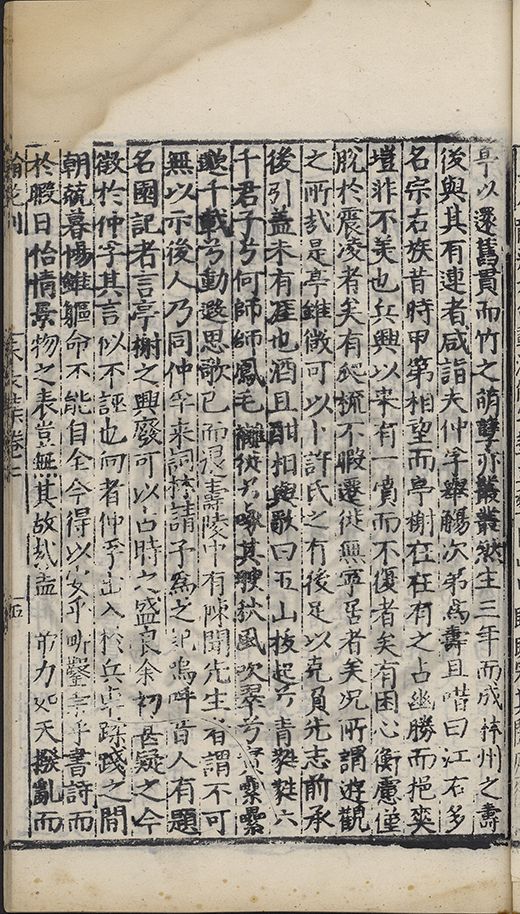 亭以還舊貫而竹之萌孽亦叢叢然生三年而成梓州之壽
後與其有連者咸詣夫仲孚舉觴次第為壽且喈曰江右多
名宗右族昔時甲第相望而亭榭在在有之占幽勝而挹爽
塏非不美也兵興以來有一僨而不復者矣有困心衡慮僅
脫於震凌者矣有爬梳不暇遷徙無寧居者矣况所謂遊觀
之所㢤是亭雖微可以卜許氏之有後足以克負先志前承
後引盖未有涯也酒且酣相與歌曰玉山拔起兮青㲯㲯六
千君子兮何師師鳳毛褷兮啄其秋風吹翠兮寒纍纍
千載兮動遐思歌已而退壽陵中有陳聞先生者謂不可
無以示後人乃同仲孚來詞林請予為之記嗚呼昔人有題
名園記者言亭榭之興廢可以占時之盛衰余初甚疑之今
徵於仲孚其言似不誣也向者仲孚出入於兵卒踩踐之間
朝兢暮惕雖軀命不能自全今得以安乎書詩而
於暇日怡情景物之表豈無其故㢤盖力如天撥亂而